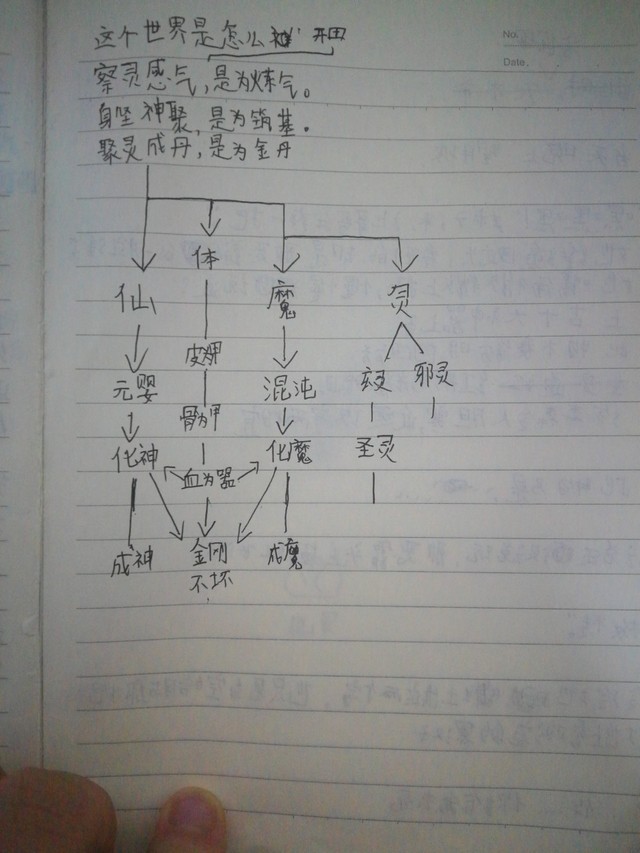 这个世界是怎么
No.
Date.
察灵感气,是为炼气。
身坐神聚,是为筑基。
聚灵成丹,是为金丹
仙 体 魔 灵
皮甲
元婴 混沌 邪灵
骨为甲
化神 化魔 圣灵
血为器
成神 金刚 成魔
不坏